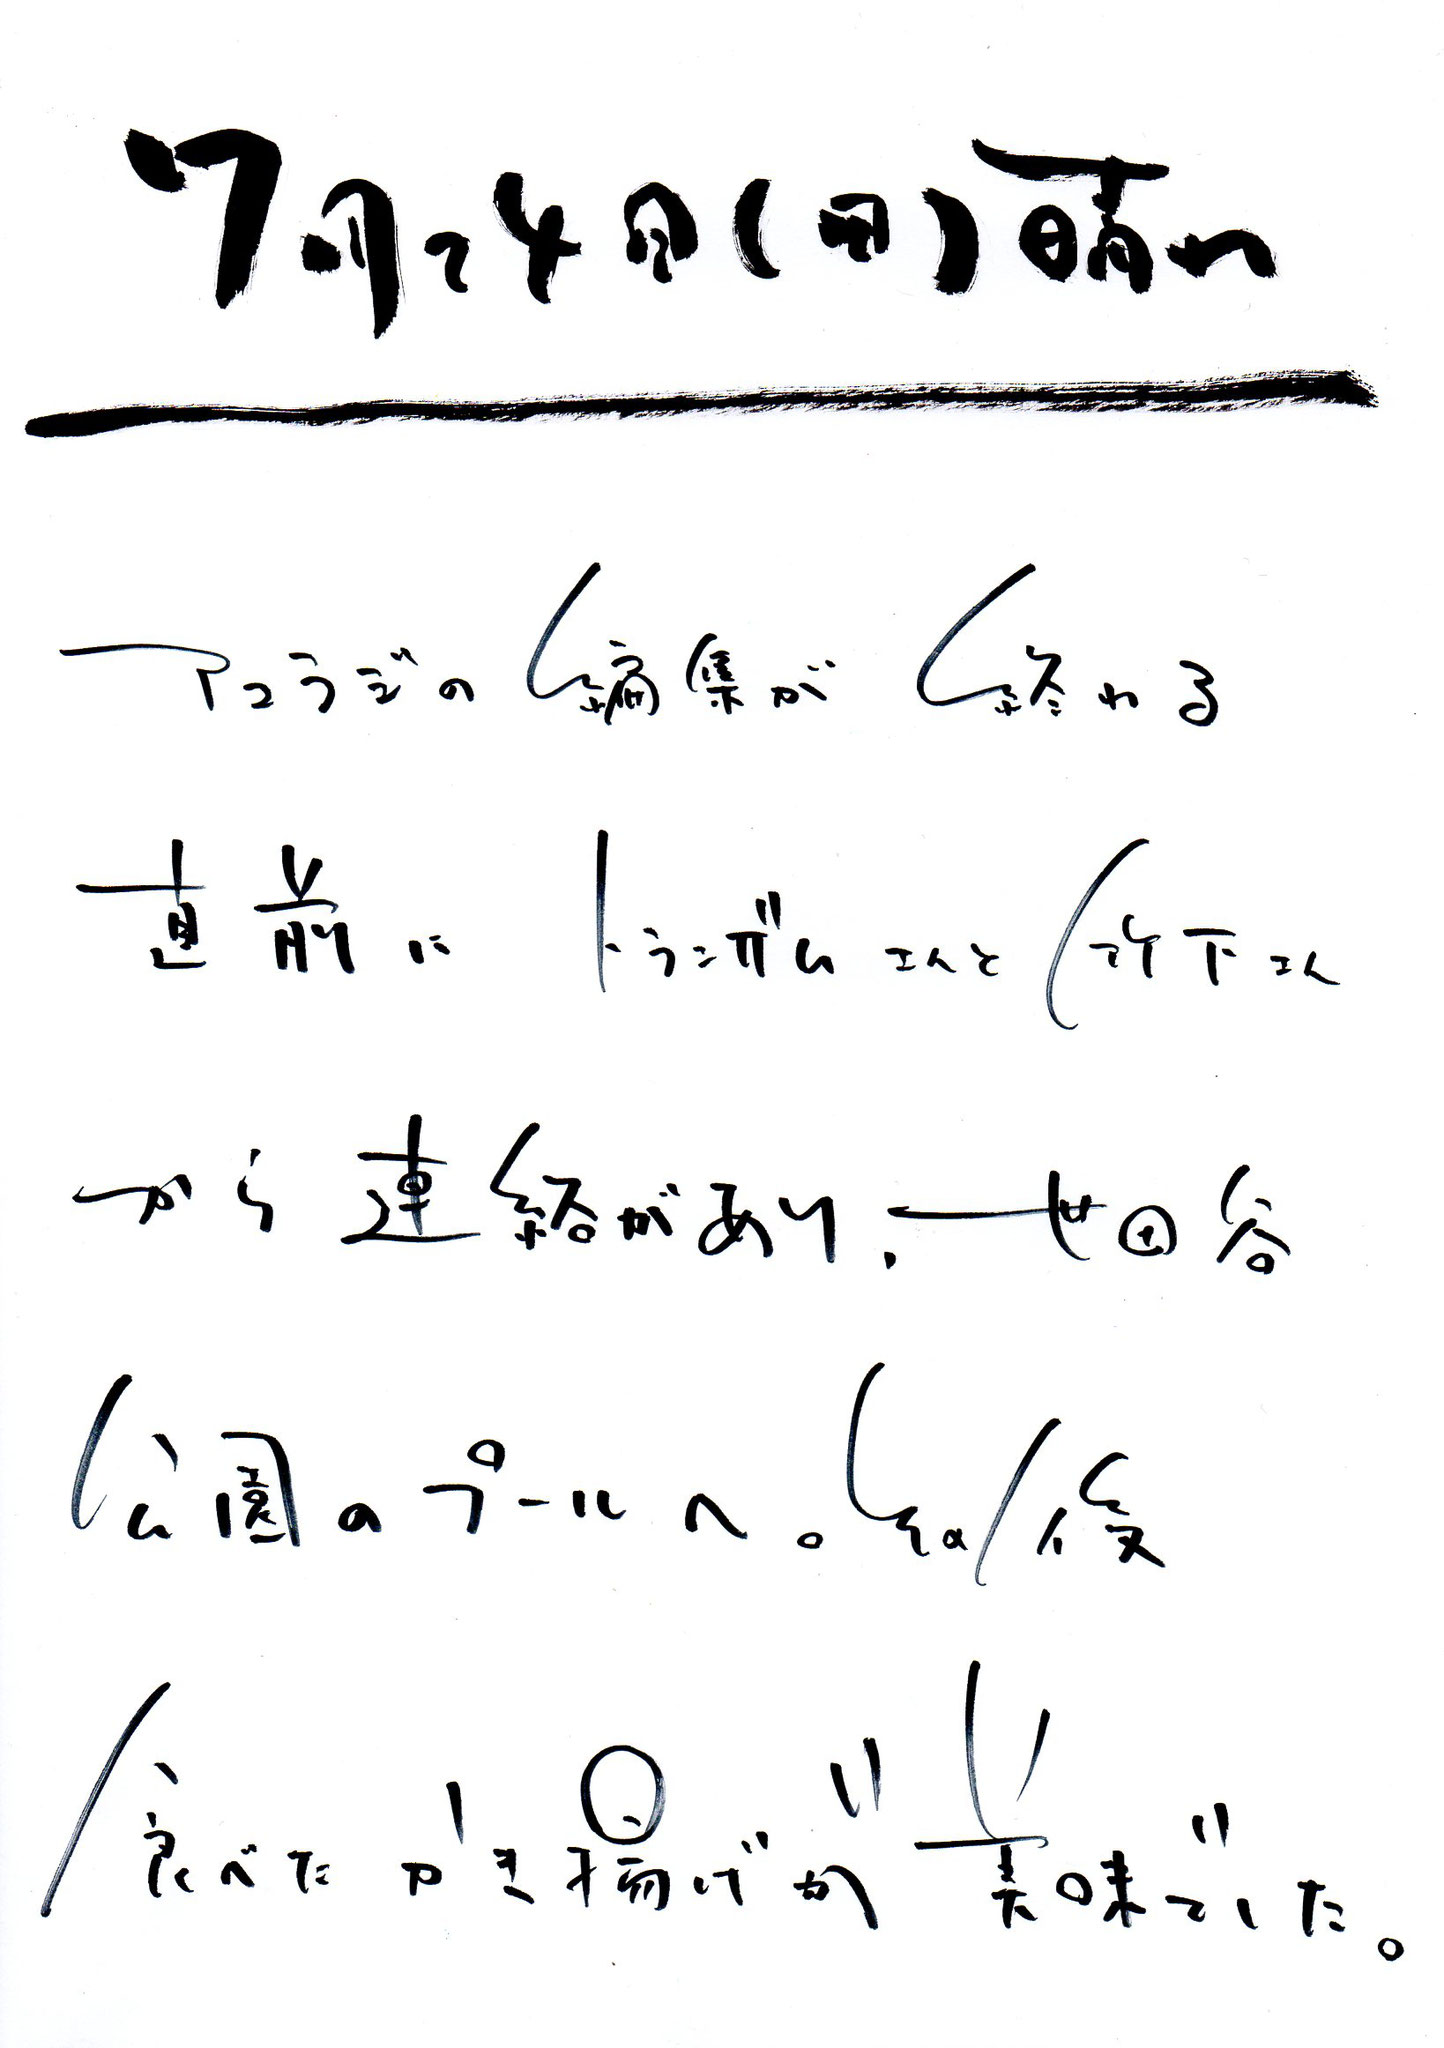 7月24日(日)晴れ
アコラジの編集が終わる
直前にトランザムさんと竹下さん
から連絡があり、世田谷
公園のプールへ。その後
食べたかき揚げが美味でした。